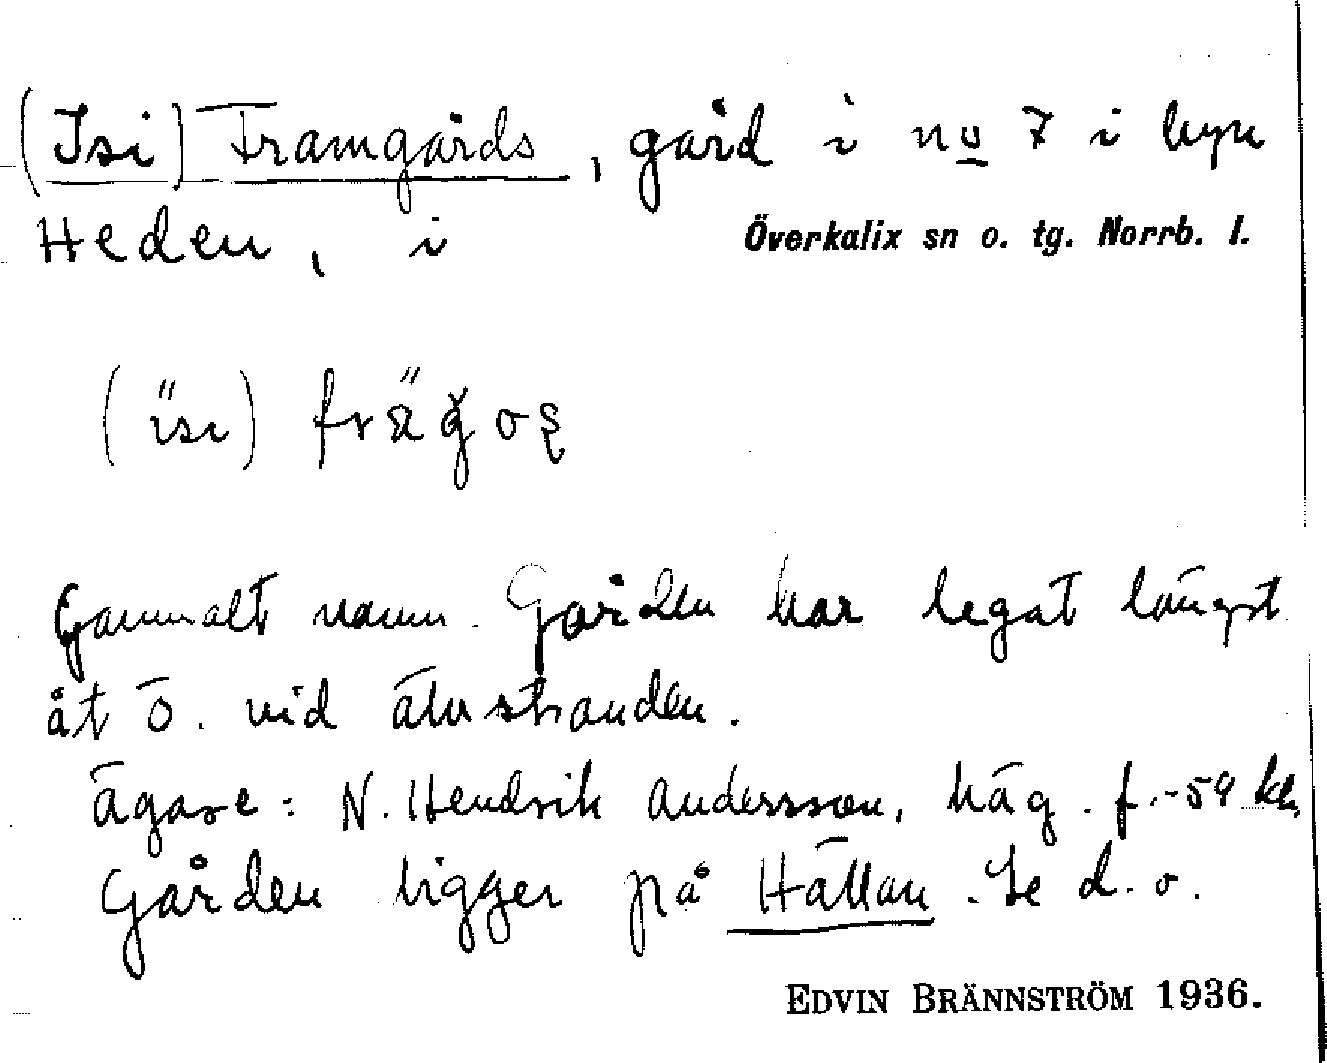 (Isi) Framgårds, gård i no 7 i byn
Heden, i Överkalix sn o. tg. Norrb. l.
Gammalt namn. Gården har legat längst
åt ö. vid älvstranden.
Ägare: N. Hendrik Andersson, häg. f.-59
Gården ligger på Hällan. Se d. o.
EDVIN BRÄNNSTRÖM 1936.